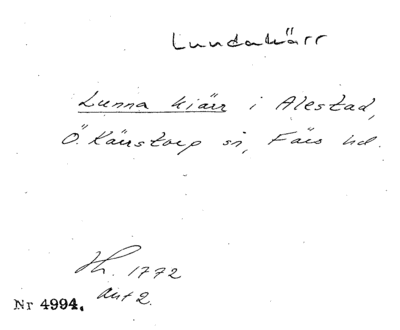 Lundakärr
Lunna kiärr i Alestad,
Ö. Kärrstorp sn, Färs hd.
Jh. 1772
akt 2.
Nr 4994.